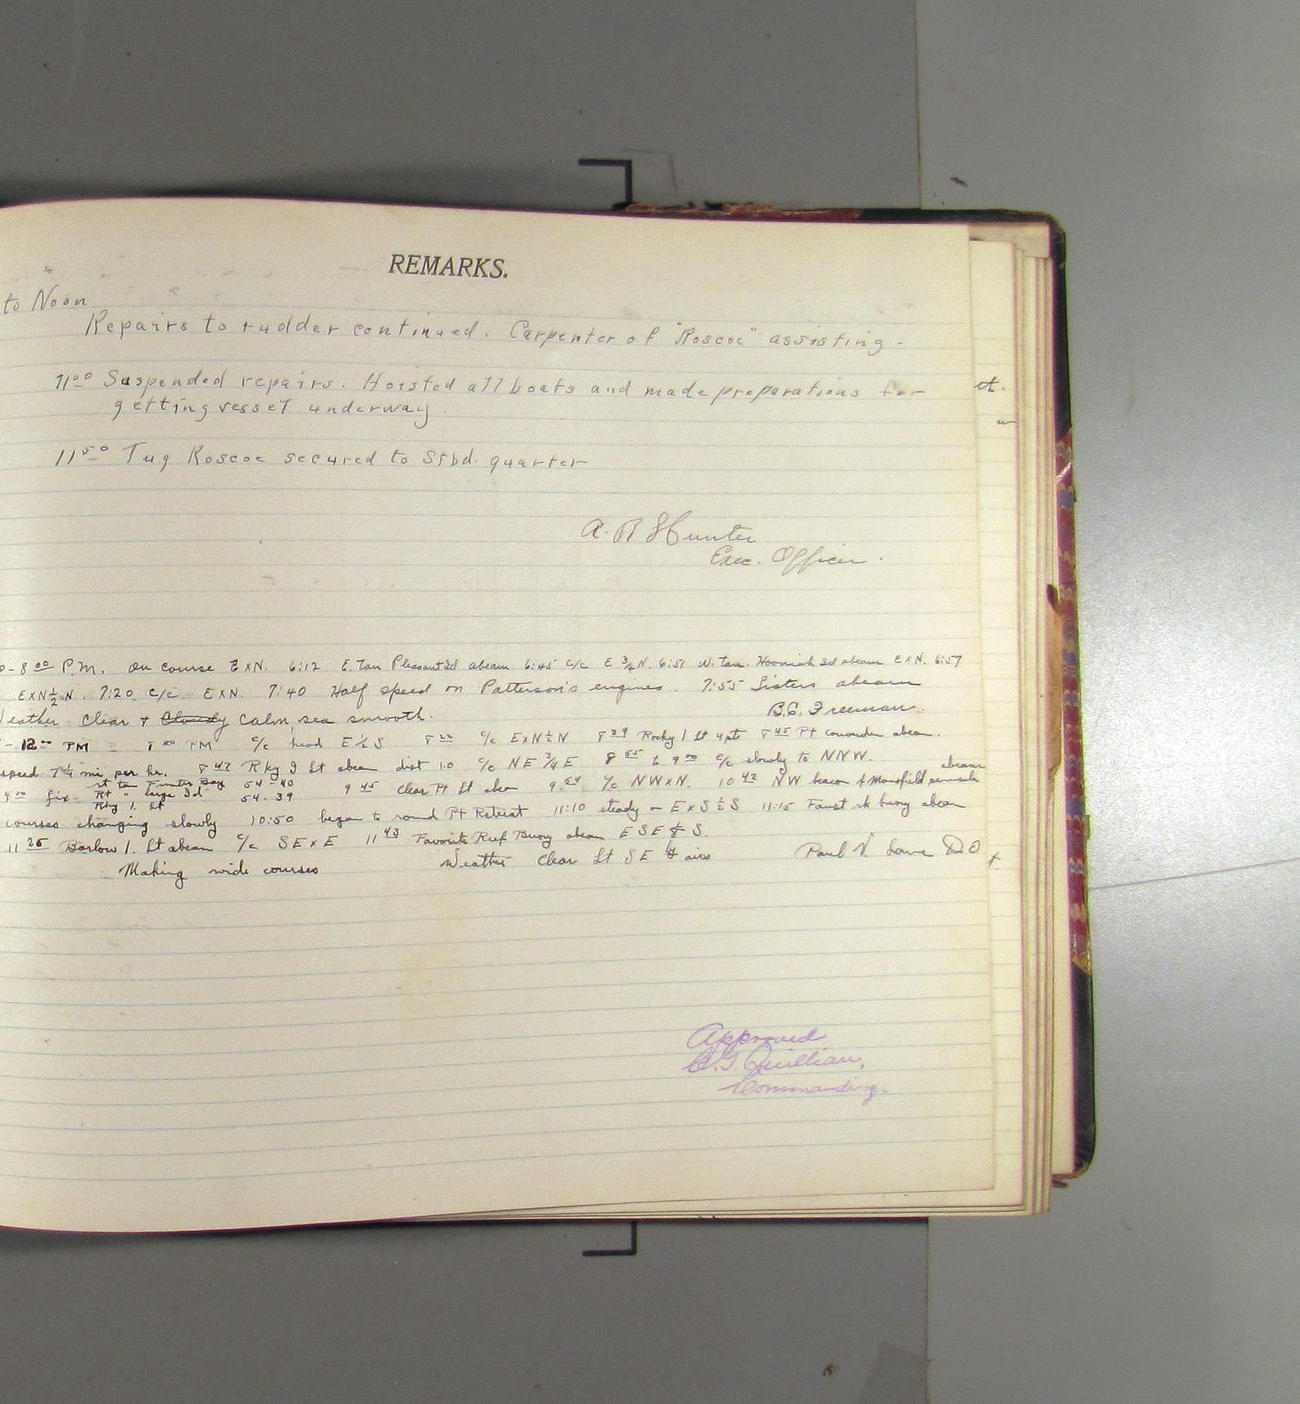 REMARKS.
to Noon
Repairs to rudder continued. Carpenter of "Roscoe" assisting-
11⁰⁰ Suspended repairs. Hoisted all boats and made preparations for
getting vessel underway.
11⁵⁰ Tug Roscoe secured to Stbd. quarter
A. B Hunter
Exec. Officer.
- 8⁰⁰ P.M. On course ExN. 6:12 E. Tan Pleasant Id abeam 6:45 c/c E 3/4 N. 6:51 W. Tan. Hooniah Id abeam ExN. 6:57
ExN½N. 7:20 c/c ExN. 7:40 Half speed on Patterson's engines. 7:55 Sisters abeam
Weather Clear + Cloudy Calm, sea smooth.
B.C. Freeman.
- 12⁰⁰ PM 8⁰⁰ PM c/c head E½S c/c ExN½N 8²⁹ Rocky I Lt 4 pts 8⁴⁵ Pt abeam.
speed 7½ mi per hr. 8⁴⁷ Rky I Lt abeam dist 1.0 c/c NE 3/4 E 8⁵⁵ to 9⁰⁰ c/c slowly to NNW.
abeam
fix rt tan Funter Bay 54-40 9⁴⁵ Clear Pt Lt abm 9⁵⁴ c/c NWxN. 10⁴² NW beacon of Mansfield peninsula
Rt " large Id 54-39
Rky I. Lt
courses changing slowly 10:50 began to round Pt Retreat 11:10 steady on ExS½S 11:15 Faust rk buoy abeam
11²⁵ Barlow I. Lt abeam c/c SExE 11⁴³ Favorite Reef Buoy abeam ESE ⅛ S.
Making wide courses Weather Clear Lt SE airs Paul V. Lane D.O
Approved
C.G. Quillian,
Commanding.